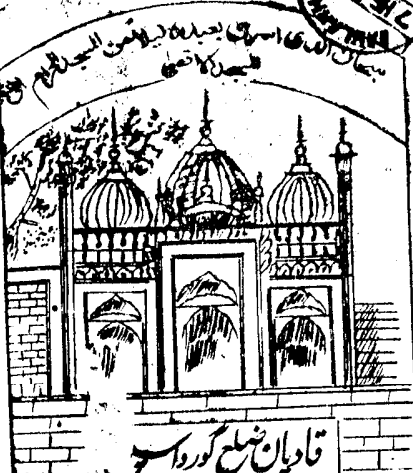 سبحان الذی اسری بعبدہ لیلا من المسجد الحرام الی
المسجد الاقصی
قادیان ضلع گورداس